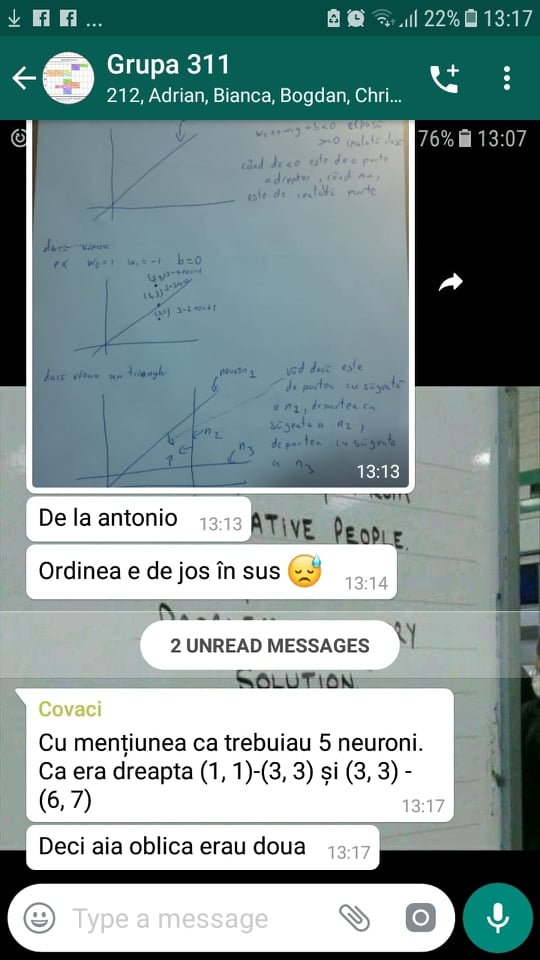 ... 22% 13:17
Grupa 311
212, Adrian, Bianca, Bogdan, Chri...
76% 13:07
>=0
când d<0 este de o parte
a dreptei, când
este de cealaltă parte
dacă vreau
ex w₀=1 w₁=-1 b=0
dacă vreau un triunghi
neuron 1
văd dacă este
de partea cu săgeată
a n₁, de partea cu
săgeata a n₂,
de partea cu săgeata
a n₃
n₂
n₃
13:13
De la antonio 13:13
ATIVE PEOPLE.
Ordinea e de jos în sus 😓 13:14
2 UNREAD MESSAGES
RY
SOLUTION
Covaci
Cu mențiunea ca trebuiau 5 neuroni.
Ca era dreapta (1, 1)-(3, 3) și (3, 3) -
(6, 7) 13:17
Deci aia oblica erau doua 13:17
Type a message